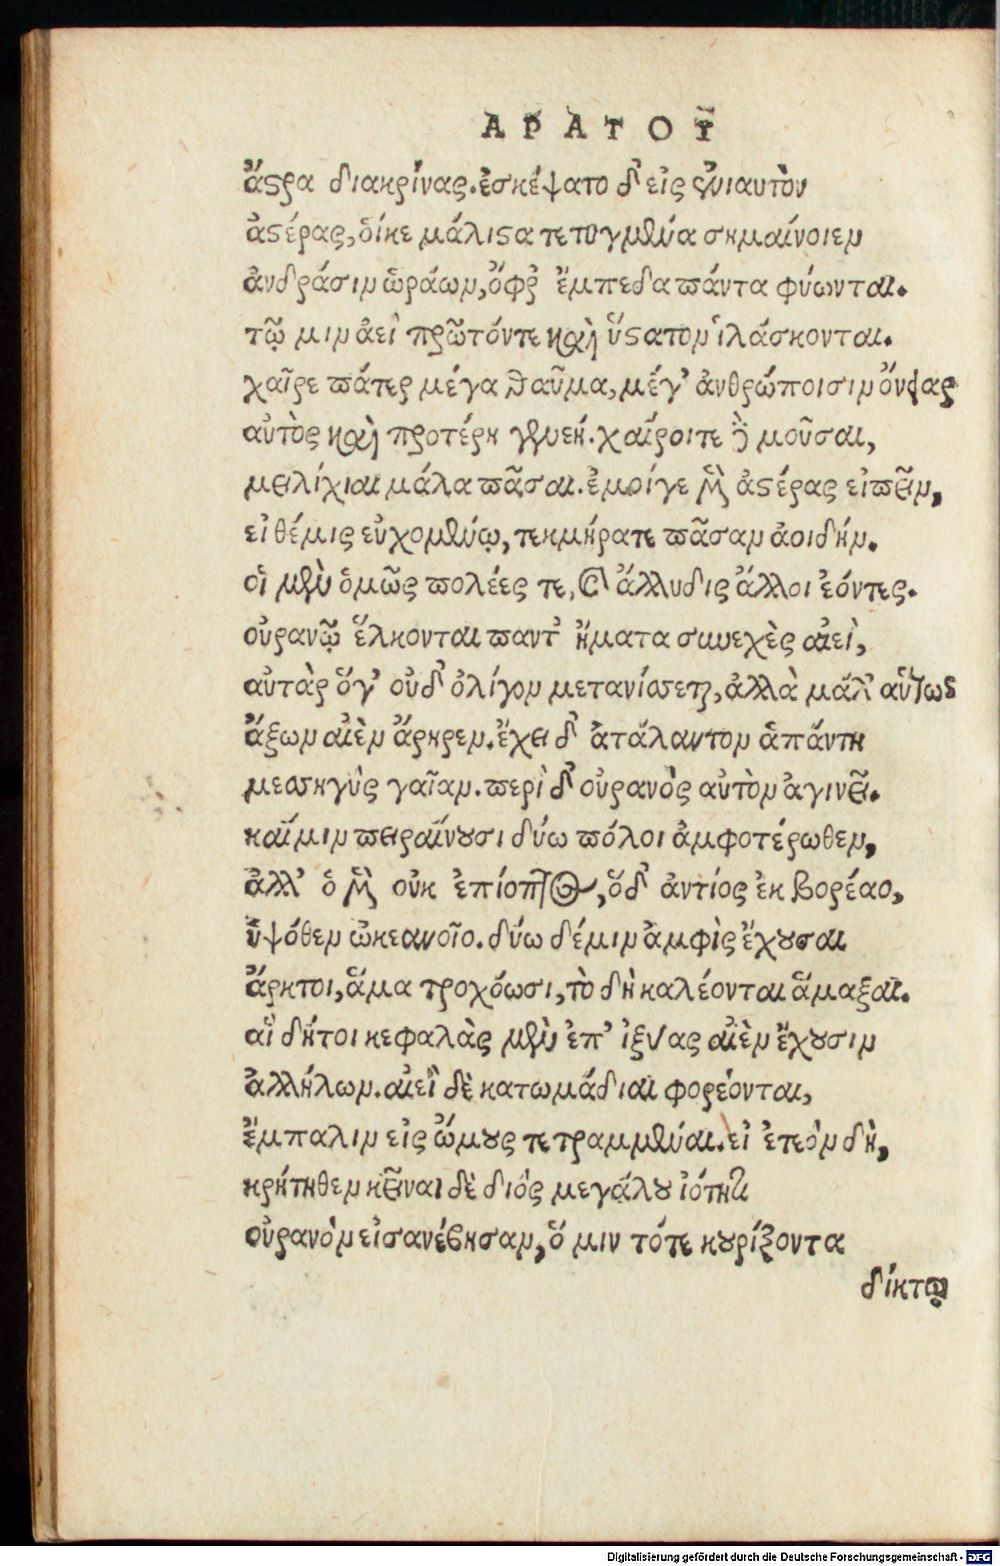 ΑΡΑΤΟΥ͂
ἄστρα διακρίνας. ἐσκέψατο δ᾽ εἰς ἐνιαυτὸν
ἀστέρας, ὅίκε μάλιστα τετυγμένα σημαίνοιεν
ἀνδράσιν ὡράων, ὄφρ᾽ ἔμπεδα πάντα φύωνται.
τῷ μιν ἀεὶ πρῶτόντε καὶ ὕστατον ἱλάσκονται.
χαῖρε πάτερ μέγα θαῦμα, μέγ᾽ ἀνθρώποισιν ὄνειαρ
αὐτὸς καὶ προτέρη γενεή. χαίροιτε δὲ μοῦσαι,
μειλίχιαι μάλα πᾶσαι. ἐμοίγε μὲν ἀστέρας εἰπεῖν,
εἰ θέμις εὐχομένῳ, τεκμήρατε πᾶσαν ἀοιδήν.
οἱ μὲν ὁμῶς πολέες τε, καὶ ἄλλυδις ἄλλοι ἐόντες.
οὐρανῷ ἕλκονται παντ᾽ ἤματα συνεχὲς αἰεὶ,
αὐτὰρ ὅγ᾽ οὐδ᾽ ὀλίγον μετανίσσεται, ἀλλὰ μάλ᾽ αὕτως
ἄξων αἰὲν ἄρηρεν. ἔχει δ᾽ ἀτάλαντον ἁπάντη
μεσσηγὺς γαῖαν. περὶ δ᾽ οὐρανὸς αὐτὸν ἀγινεῖ.
καί μιν πειραίνουσι δύω πόλοι ἀμφοτέρωθεν,
ἀλλ᾽ ὁ μὲν οὐκ ἐπίοπτος, ὅδ᾽ ἀντίος ἐκ βορέαο,
ὑψόθεν ὠκεανοῖο. δύω δέ μιν ἀμφὶς ἔχουσαι
ἄρκτοι, ἅμα τροχόωσι, τὸ δὴ καλέονται ἅμαξαι.
αἳ δήτοι κεφαλὰς μὲν ἐπ᾽ ἰξύας αἰὲν ἔχουσιν
ἀλλήλων. αἰεὶ δὲ κατωμάδιαι φορέονται,
ἔμπαλιν εἰς ὤμους τετραμμέναι. εἰ ἐτεὸν δὴ,
κρήτηθεν κεῖναι δὲ διὸς μεγάλου ἰότητι
οὐρανὸν εἰσανέβησαν, ὅ μιν τότε κουρίζοντα
δίκτῳ
Digitalisierung gefördert durch die Deutsche Forschungsgemeinschaft - DFG